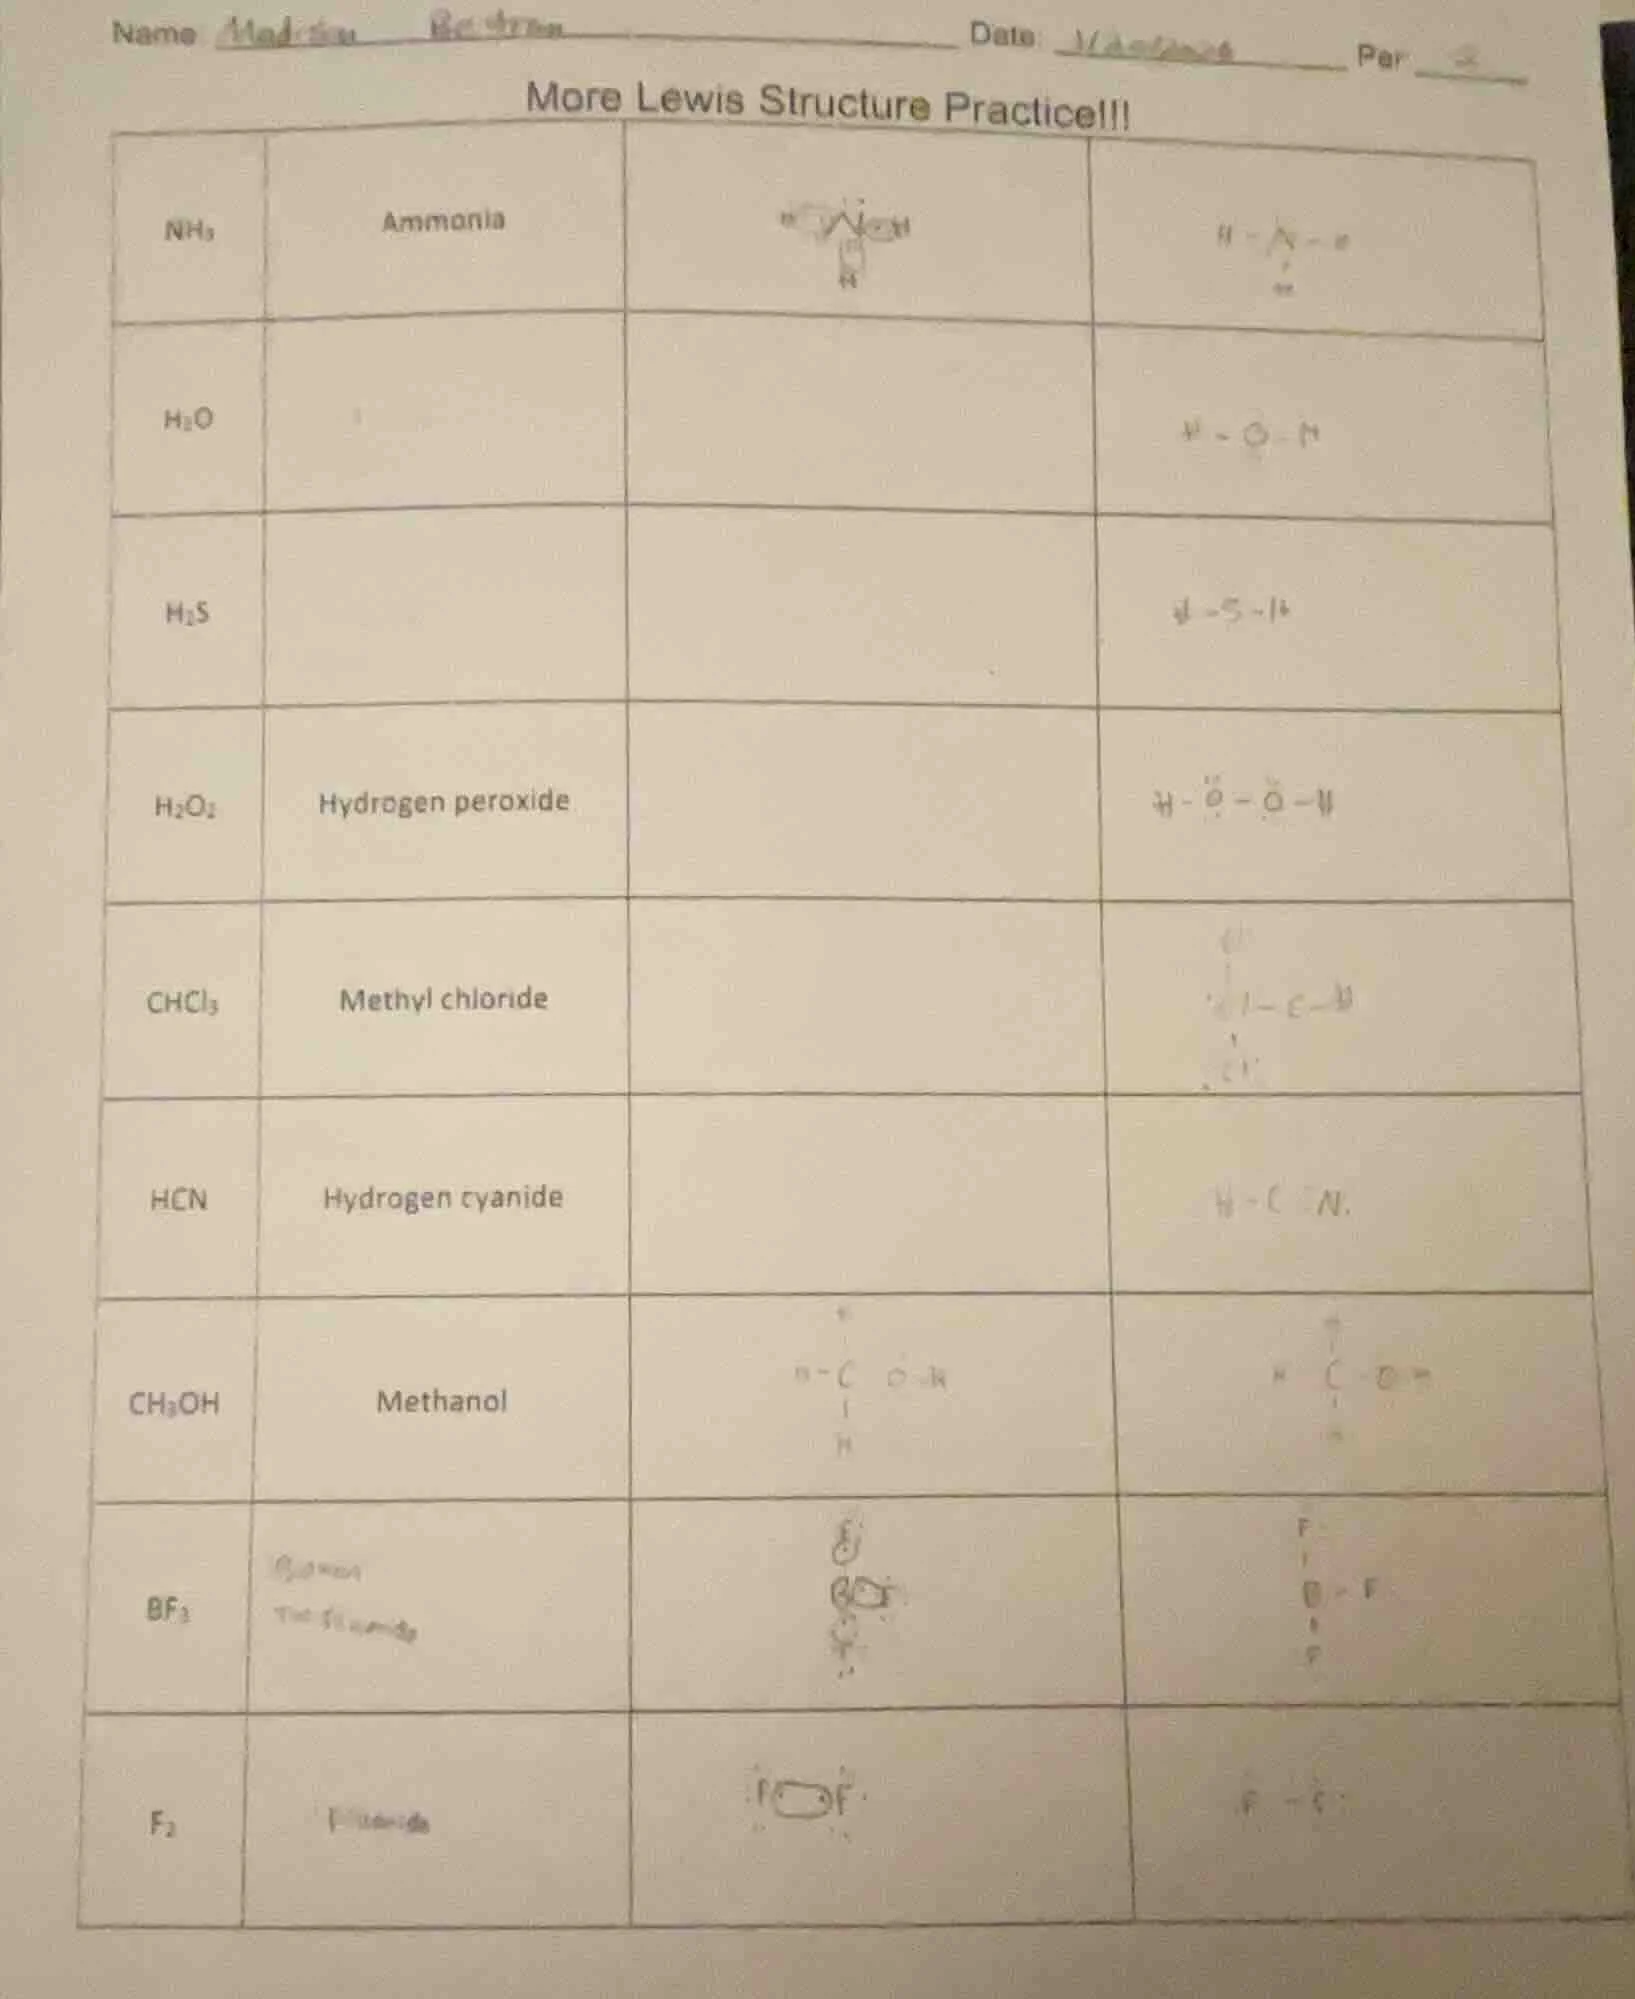 Name Madison Date: Per 2
More Lewis Structure Practice!!!
NH₃ Ammonia
H N H
H
H - N - H
H
H₂O
H - O - H
H₂S
H - S - H
H₂O₂ Hydrogen peroxide
H - O - O - H
CHCl₃ Methyl chloride
Cl
Cl - C - H
Cl
HCN Hydrogen cyanide
H - C N
CH₃OH Methanol
H
H - C O - H
H
H
H C - O - H
H
BF₃
F
B F
F
F
B - F
F
F₂
F F
F - F